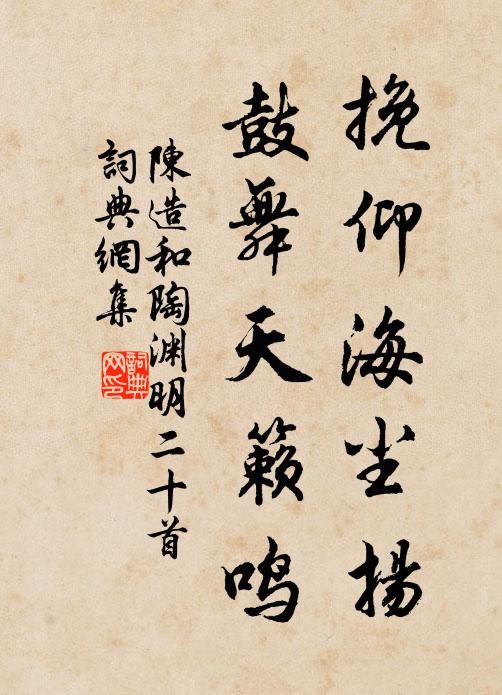 挽仰海尘揚
鼓舞天籟鸣
陳造和陶渊明二十首
詞典網集
詞典
网印